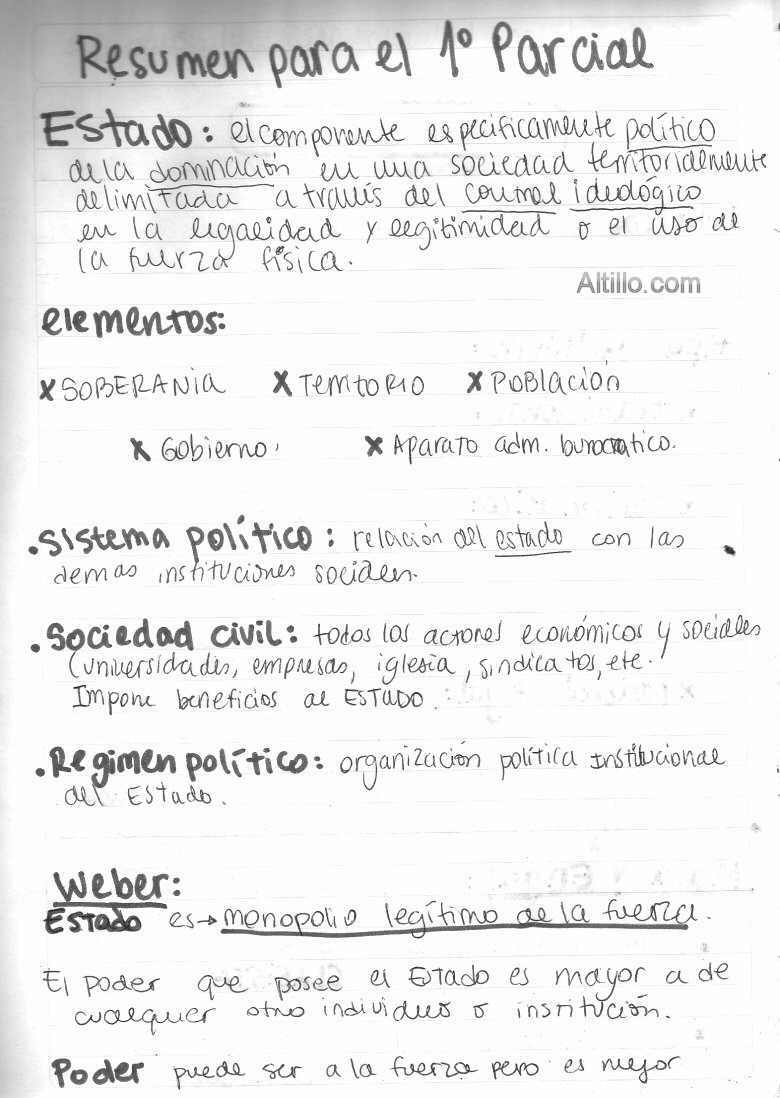 Resumen para el 1º Parcial
Estado: el componente específicamente político
de la dominación en una sociedad territorialmente
delimitada a través del control ideológico
en la legalidad y legitimidad o el uso de
la fuerza física.
Altillo.com
elementos:
x SOBERANIA x TERRITORIO x POBLACIÓN
x GOBIERNO. x APARATO adm. burocratico.
. Sistema político: relación del estado con las
demas instituciones sociales.
. Sociedad civil: todos los actores económicos y sociales
(universidades, empresas, iglesia, sindicatos, etc.
Impone beneficios al ESTADO.
. Regimen político: organización política institucional
del Estado.
Weber:
ESTADO es → monopolio legítimo de la fuerza.
El poder que posee el Estado es mayor a de
cualquier otro individuo o institución.
Poder puede ser a la fuerza pero es mejor